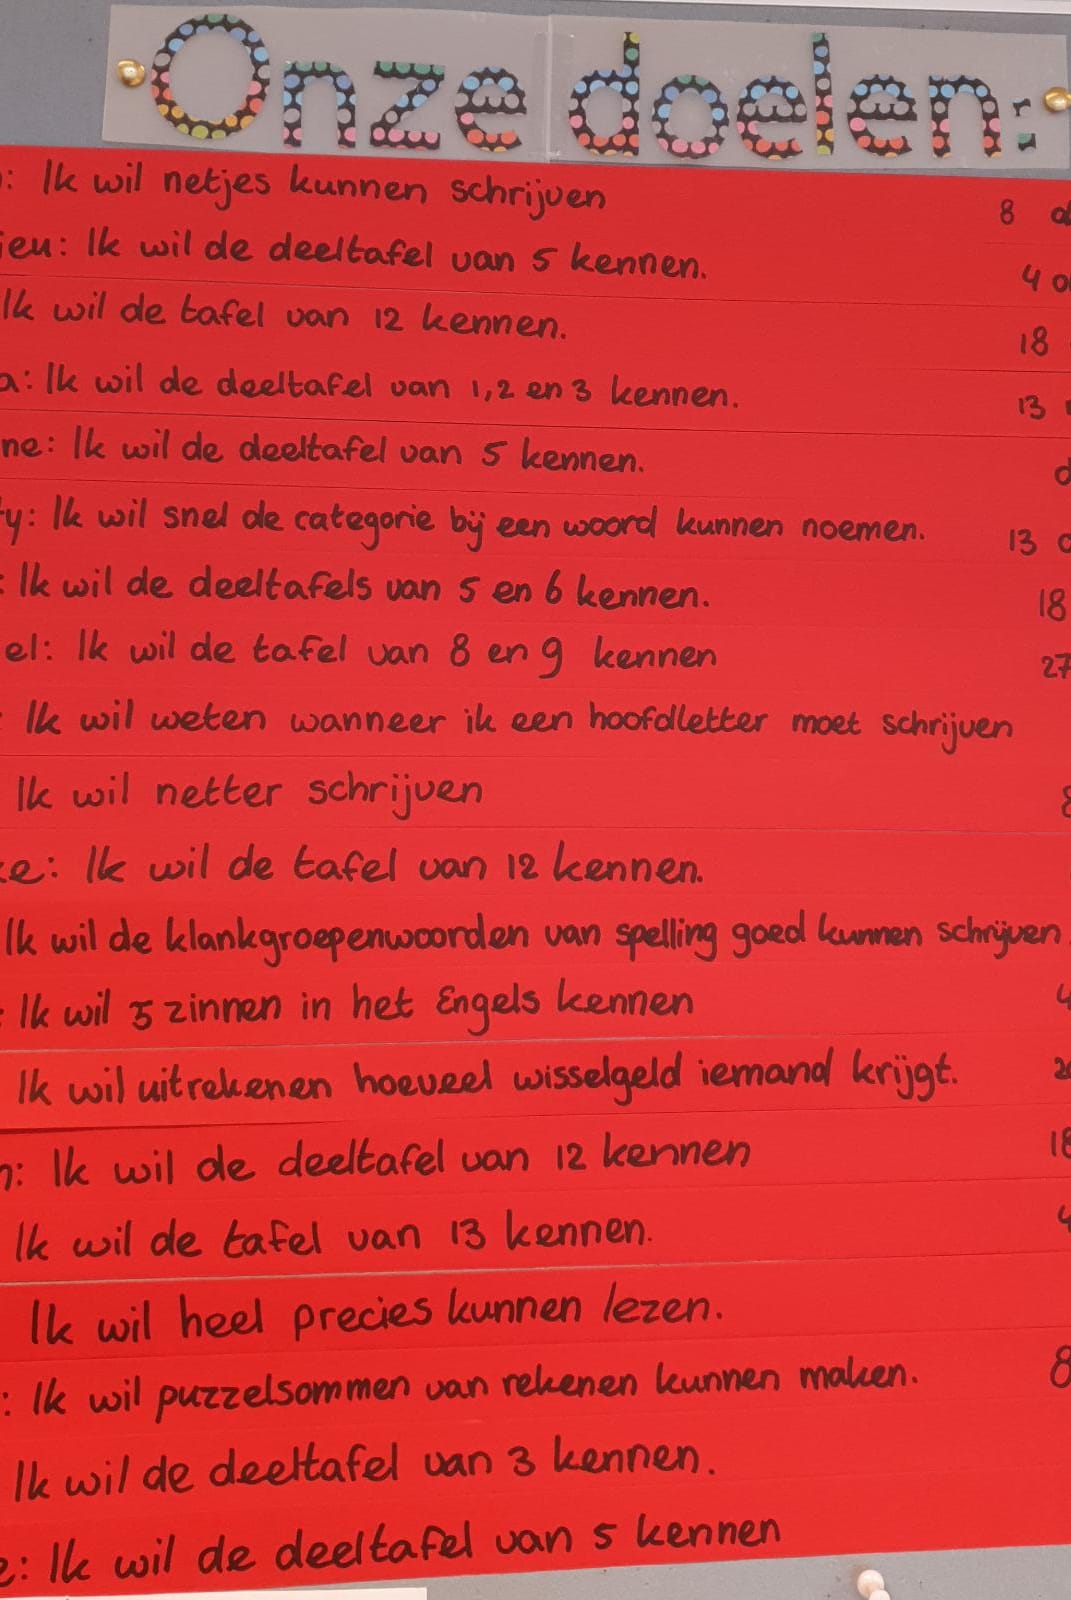 Onze doelen:
: Ik wil netjes kunnen schrijven 8
jeu: Ik wil de deeltafel van 5 kennen. 4
Ik wil de tafel van 12 kennen. 18
a: Ik wil de deeltafel van 1,2 en 3 kennen. 13
ne: Ik wil de deeltafel van 5 kennen.
ty: Ik wil snel de categorie bij een woord kunnen noemen. 13
: Ik wil de deeltafels van 5 en 6 kennen. 18
el: Ik wil de tafel van 8 en 9 kennen 27
: Ik wil weten wanneer ik een hoofdletter moet schrijven
Ik wil netter schrijven 8
ke: Ik wil de tafel van 12 kennen.
Ik wil de klankgroepenwoorden van spelling goed kunnen schrijven
: Ik wil 5 zinnen in het Engels kennen 4
Ik wil uitrekenen hoeveel wisselgeld iemand krijgt. 20
n: Ik wil de deeltafel van 12 kennen 18
Ik wil de tafel van 13 kennen. 4
Ik wil heel precies kunnen lezen.
: Ik wil puzzelsommen van rekenen kunnen maken. 8
Ik wil de deeltafel van 3 kennen.
e: Ik wil de deeltafel van 5 kennen